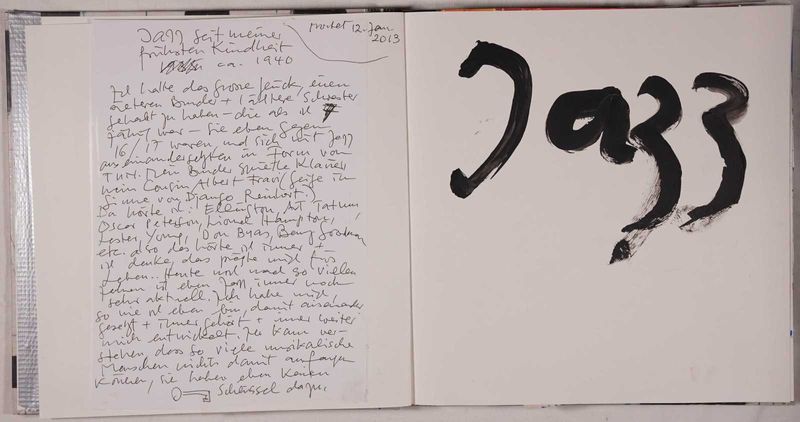 Jazz seit meiner
frühsten Kindheit
ca. 1940
notiert 12. Jan.
2013
Ich hatte das grosse Glück, einen
älteren Bruder + 1 ältere Schwester
gehabt zu haben – die als ich 7
jährig war – sie eben gegen
16/17 waren, und sich mit Jazz
auseinandersetzten in Form von
Tun. Mein Bruder spielte Klavier
mein Cousin Albert Geige im
Sinne von Django Reinhart.)
Da hörte ich: Ellington, Art Tatum
Oscar Peterson, Lionel Hampton,
Lester Young, Don Byas, Benny Goodman
etc. also das hörte ich immer +
ich denke, das prägte mich fürs
Leben.. Heute und nach so vielen
Jahren ist eben Jazz immer noch
sehr aktuell. Ich habe mich,
so wie ich eben bin, damit auseinander
gesetzt + immer gehört + immer weiter
mich entwickelt. Ich kann ver-
stehen, dass so viele musikalische
Menschen nichts damit anfangen
können, sie haben eben keinen
Schlüssel dazu.
Jazz